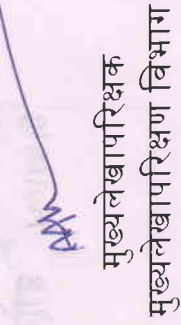 मुख्यलेखापरिक्षक
मुख्यलेखापरिक्षण विभाग